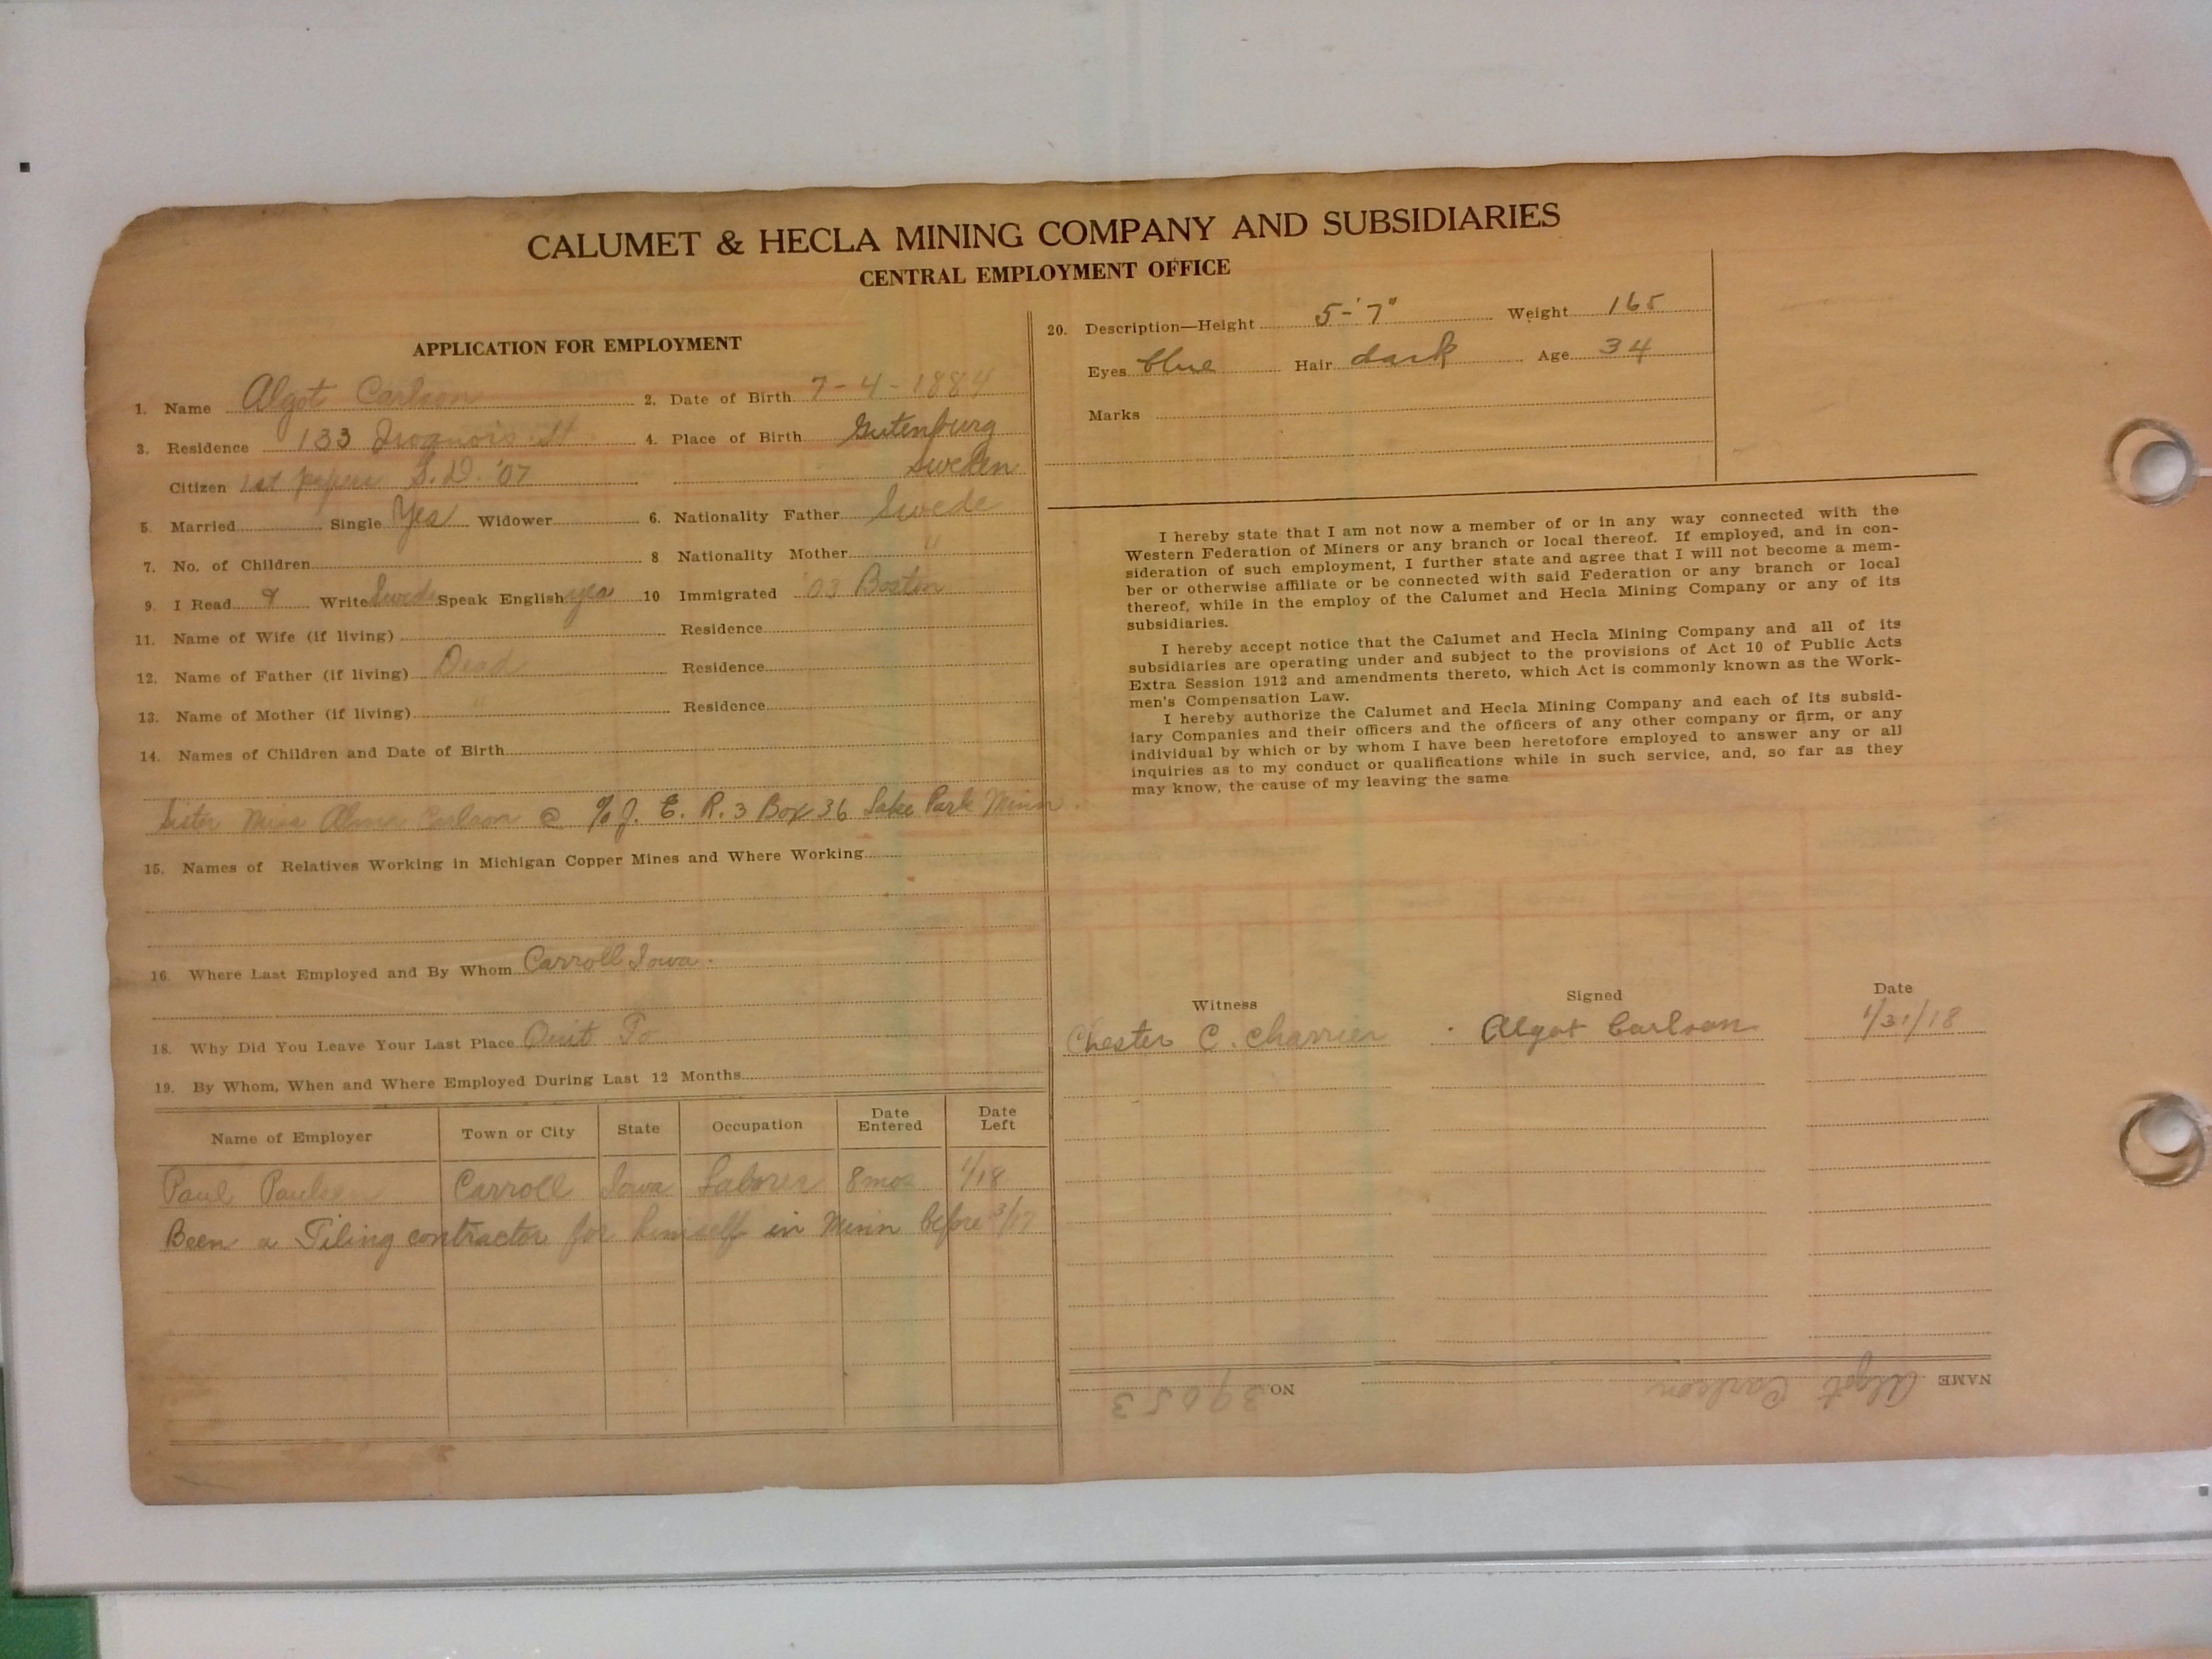 CALUMET & HECLA MINING COMPANY AND SUBSIDIARIES
CENTRAL EMPLOYMENT OFFICE
APPLICATION FOR EMPLOYMENT
1. Name Algot Carlson 2. Date of Birth 7-4-1884
3. Residence 133 Iroquois St 4. Place of Birth Gutenburg
Citizen 1st papers S.D. '07 Sweden
5. Married Single Yes Widower 6. Nationality Father Swede
7. No. of Children 8 Nationality Mother "
9. I Read & Write Swede Speak English yes 10 Immigrated '03 Boston
11. Name of Wife (if living) Residence
12. Name of Father (if living) Dead Residence
13. Name of Mother (if living) " Residence
14. Names of Children and Date of Birth
Sister Miss Alma Carlson @ % J. E. R. 3 Box 36 Lake Park Minn.
15. Names of Relatives Working in Michigan Copper Mines and Where Working
16. Where Last Employed and By Whom Carroll Iowa.
18. Why Did You Leave Your Last Place Quit To
19. By Whom, When and Where Employed During Last 12 Months
Name of Employer Town or City State Occupation Date Entered Date Left
Paul Paulsen Carroll Iowa Laborer 8 mos 1/18
Been a Tiling contractor for himself in Minn before 3/17
20. Description—Height 5-'7" Weight 165
Eyes blue Hair dark Age 34
Marks
I hereby state that I am not now a member of or in any way connected with the
Western Federation of Miners or any branch or local thereof. If employed, and in con-
sideration of such employment, I further state and agree that I will not become a mem-
ber or otherwise affiliate or be connected with said Federation or any branch or local
thereof, while in the employ of the Calumet and Hecla Mining Company or any of its
subsidiaries.
I hereby accept notice that the Calumet and Hecla Mining Company and all of its
subsidiaries are operating under and subject to the provisions of Act 10 of Public Acts
Extra Session 1912 and amendments thereto, which Act is commonly known as the Work-
men's Compensation Law.
I hereby authorize the Calumet and Hecla Mining Company and each of its subsid-
iary Companies and their officers and the officers of any other company or firm, or any
individual by which or by whom I have been heretofore employed to answer any or all
inquiries as to my conduct or qualifications while in such service, and, so far as they
may know, the cause of my leaving the same
Witness Signed Date
Chester C. Charrier Algot Carlson 1/31/18
NAME Algot Carlson NO. 39053